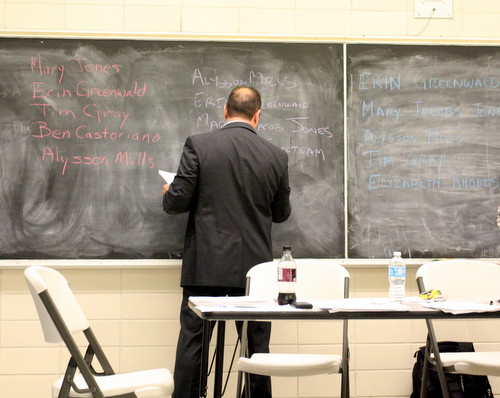 Mary Jones
Erin Greenwald
Tim Gray
Ben Castoriano
Alysson Mills
Alysson Mills
Erin Greenwald
Jones
Erin Greenwald
Mary Jones
Alysson Mills
Tim Gray
Elizabeth Rhodes